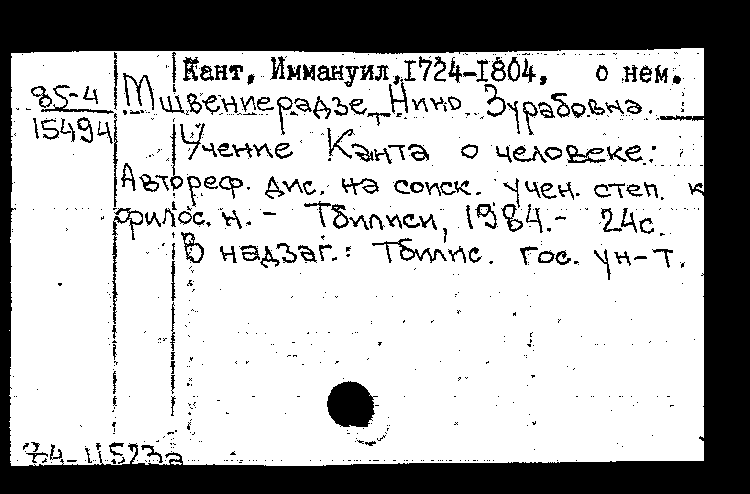 Кант, Иммануил, 1724-1804, о нем.
85-4
15494
Мшвениерадзе, Нино Зурабовна.
Учение Канта о человеке:
Автореф. дис. на соиск. учен. степ. к
филос. н. - Тбилиси, 1984.- 24с.
В надзаг.: Тбилис. гос. ун-т.
84-11523а